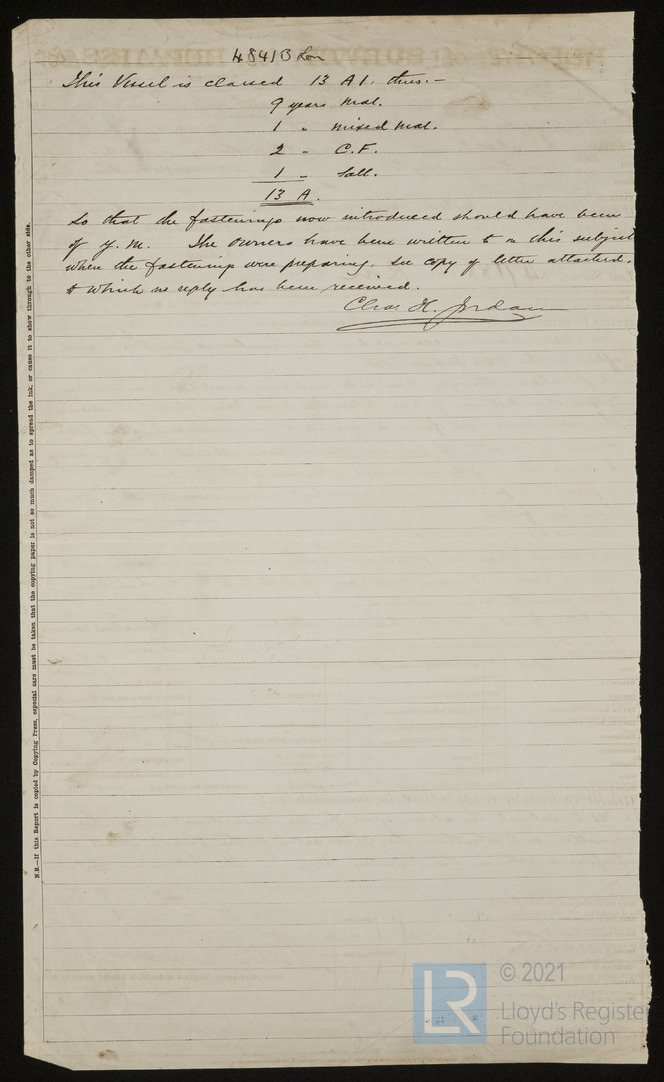 48413 Lon
This Vessel is classed 13 A1. thus:-
9 years Mat.
1 " mixed Mat.
2 " C.F.
1 " Salt.
13 A.
So that the fastenings now introduced should have been
of y. m. The owners have been written to on this subject
when the fastenings were preparing. See copy of letter attached.
to which no reply has been received.
Chas. H. Jordan
N.B.—If this Report is copied by Copying Press, especial care must be taken that the copying paper is not so much damped as to spread the ink, or cause it to show through to the other side.
LR
© 2021
Lloyd's Register
Foundation